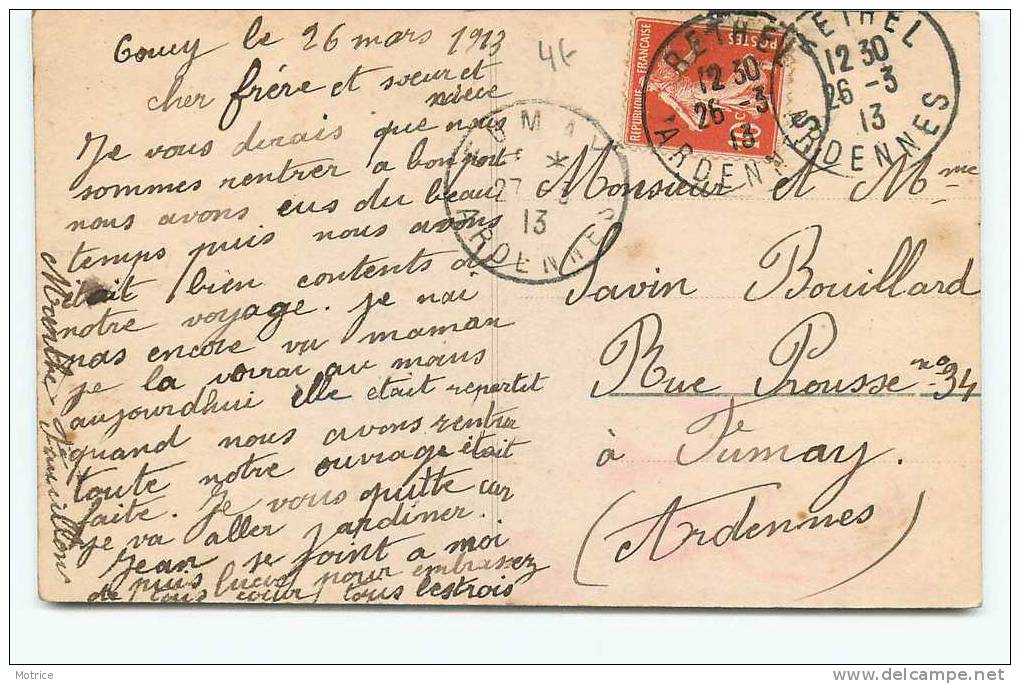 Coucy le 26 mars 1913
cher frère et sœur et
niece
Je vous dirais que nous
sommes rentrer a bon port
nous avons eus du beau
temps puis nous avons
était bien contents de
notre voyage. je nai
pas encore vu maman
je la voirai au moins
aujourdhui elle était repartit
quand nous avons rentrer
toute notre ouvrage était
faite. Je vous quitte car
je va aller jardiner.
Jean se joint a moi
puis Lucie pour embrasez
de tous cœur tous lestrois
Marthe
4F
REPUBLIQUE FRANÇAISE
POSTES
10 C
RETHEL
12 30
26 -3
13
ARDENNES
RETHEL
12 30
26 -3
13
ARDENNES
FUMAY
*
27
13
ARDENNES
Monsieur et Mme
Savin Bouillard
Rue Rousse no 34
à Fumay.
(Ardennes)
Motrice
delcampe.net